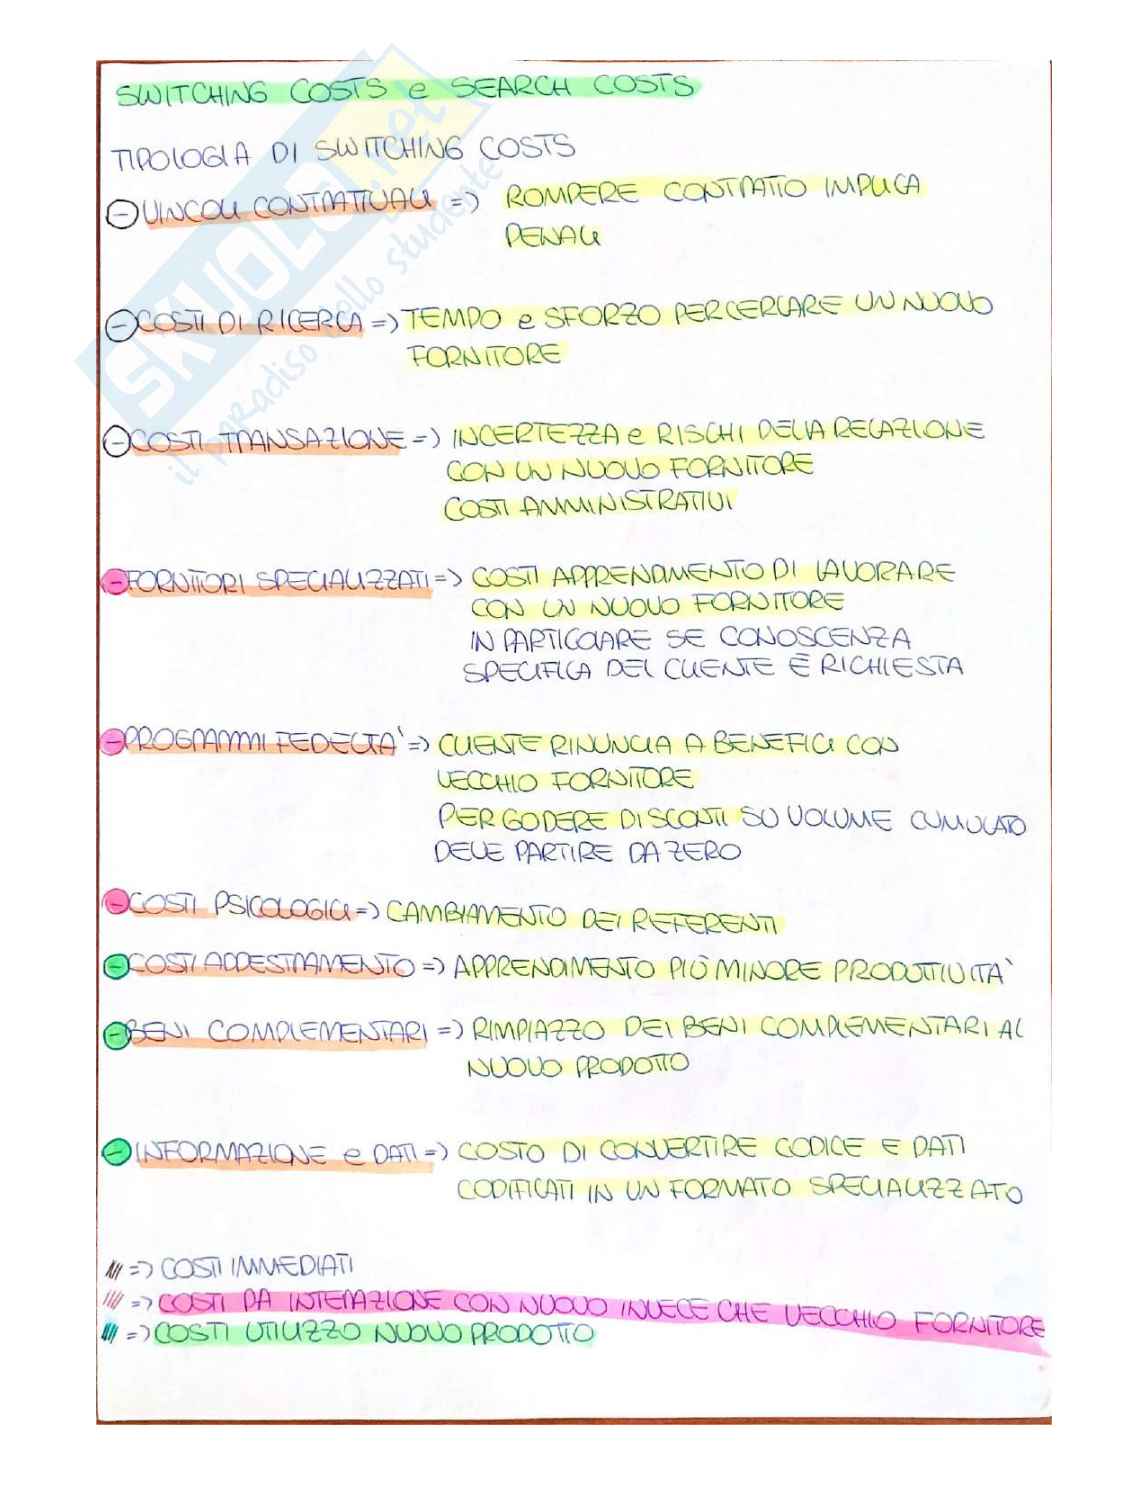 SWITCHING COSTS e SEARCH COSTS
TIPOLOGIA DI SWITCHING COSTS
- VINCOLI CONTRATTUALI => ROMPERE CONTRATTO IMPLICA
PENALI
- COSTI DI RICERCA => TEMPO e SFORZO PER CERCARE UN NUOVO
FORNITORE
- COSTI TRANSAZIONE => INCERTEZZA e RISCHI DELLA RELAZIONE
CON UN NUOVO FORNITORE
COSTI AMMINISTRATIVI
- FORNITORI SPECIALIZZATI => COSTI APPRENDIMENTO DI LAVORARE
CON UN NUOVO FORNITORE
IN PARTICOLARE SE CONOSCENZA
SPECIFICA DEL CLIENTE È RICHIESTA
- PROGRAMMI FEDELTA' => CLIENTE RINUNCIA A BENEFICI CON
VECCHIO FORNITORE
PER GODERE DI SCONTI SU VOLUME CUMULATO
DEVE PARTIRE DA ZERO
- COSTI PSICOLOGICI => CAMBIAMENTO DEI REFERENTI
- COSTI ADDESTRAMENTO => APPRENDIMENTO PIÙ MINORE PRODUTTIVITA'
- BENI COMPLEMENTARI => RIMPIAZZO DEI BENI COMPLEMENTARI AL
NUOVO PRODOTTO
- INFORMAZIONE e DATI => COSTO DI CONVERTIRE CODICE E DATI
CODIFICATI IN UN FORMATO SPECIALIZZATO
=> COSTI IMMEDIATI
=> COSTI DA INTERAZIONE CON NUOVO INVECE CHE VECCHIO FORNITORE
=> COSTI UTILIZZO NUOVO PRODOTTO
SKUOLA.net
il paradiso dello studente